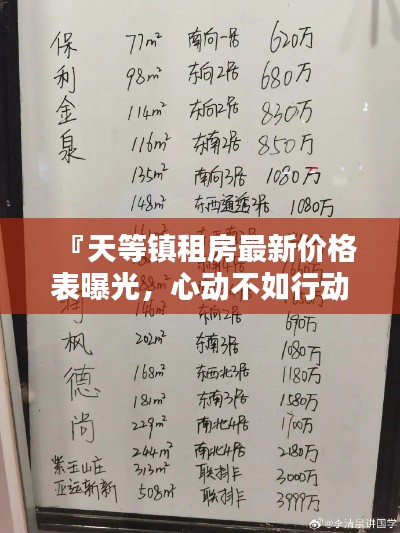 保利金泉
77m² 南向一居 620万
98m² 东向2居 680万
114m² 东向2居 830万
116m² 东南2居 850万
135m² 南向3居 1080万
148m² 东西通透2居 1080万
『天等镇租房最新价格
表曝光，心动不如行动
枫德尚
146m² 690万
202m² 东南3居 1080万
168m² 东西北3居 1180万
181m² 东南3居 1580万
229m² 南北4居 1700万
244m² 南北4居 2180万
紫玉山庄 313m² 联排 3000万
亚运新新 508m² 联排 3999万
@李清泉讲国学